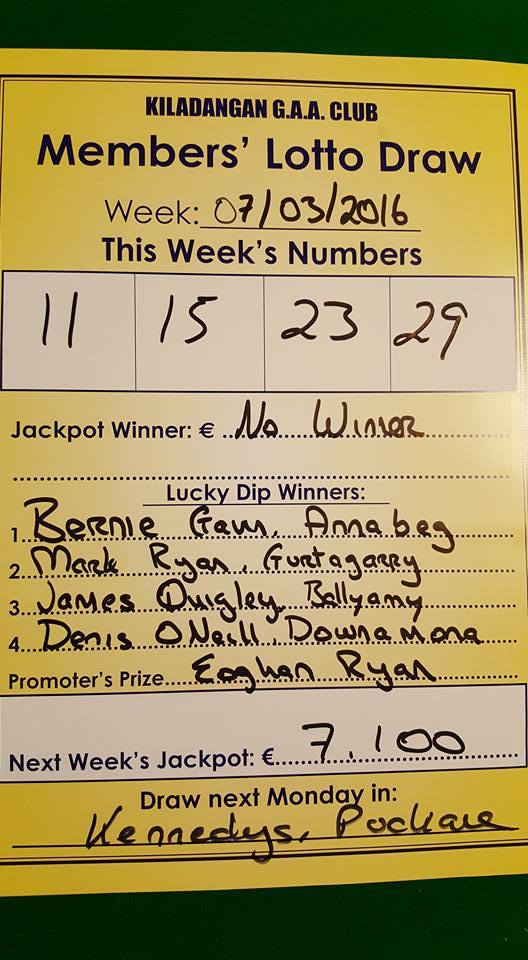 KILADANGAN G.A.A. CLUB
Members' Lotto Draw
Week: 07/03/2016
This Week's Numbers
11 15 23 29
Jackpot Winner: € No Winner
Lucky Dip Winners:
1. Bernie Gaun, Annabeg
2. Mark Ryan, Gurtagarry
3. James Quigley, Ballyamy
4. Denis O Neill, Downamona
Promoter's Prize Eoghan Ryan
Next Week's Jackpot: € 7.100
Draw next Monday in:
Kennedys, Puckane